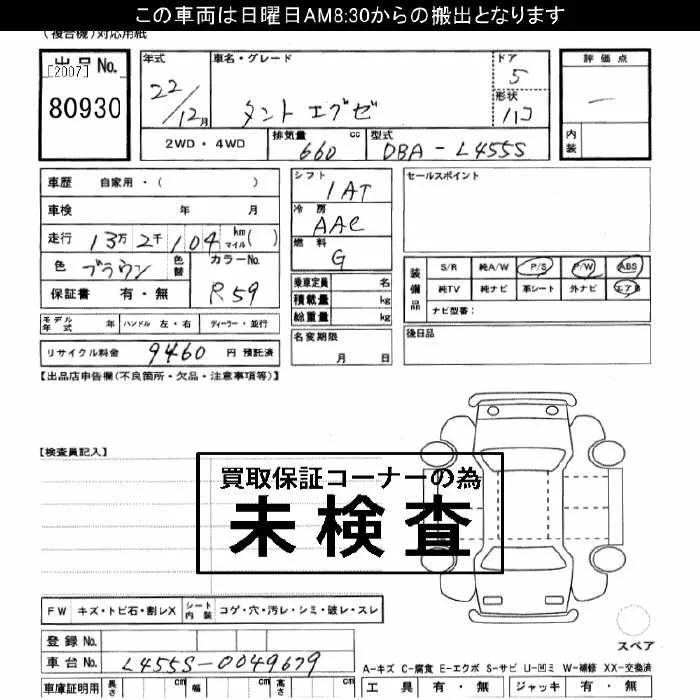 この車両は日曜日AM8:30からの搬出となります
(複合機)対応用紙
出品No.
[2007]
80930
年式
22/12月
車名・グレード
タント エグゼ
ドア
5
形状
ハコ
評価点
—
内装
2WD・4WD
排気量 660 cc
型式 DBA-L455S
車歴 自家用・( )
車検 年 月
走行 13万2千104 km マイル( )
色 ブラウン 色替
カラーNo. R59
保証書 有・無
シフト 1AT
冷房 AAC
燃料 G
乗車定員 名
積載量 kg
総重量 kg
セールスポイント
装備品
S/R 純A/W P/S P/W ABS
純TV 純ナビ 革シート 外ナビ エアB
ナビ型番:
モデル年式 年 ハンドル 左・右 ディーラー・並行
名変期限 月 日
後日品
リサイクル料金 9460 円 預託済
【出品店申告欄(不良箇所・欠品・注意事項等)】
【検査員記入】
買取保証コーナーの為
未検査
FW キズ・トビ石・割レX シート内装 コゲ・穴・汚レ・シミ・破レ・スレ
スペア
登録No.
車台No. L455S-0049679
A-キズ C-腐食 E-エクボ S-サビ U-凹ミ W-補修 XX-交換済
車庫証明用 長さ cm 幅 cm 高さ cm
工具 有・無 ジャッキ 有・無